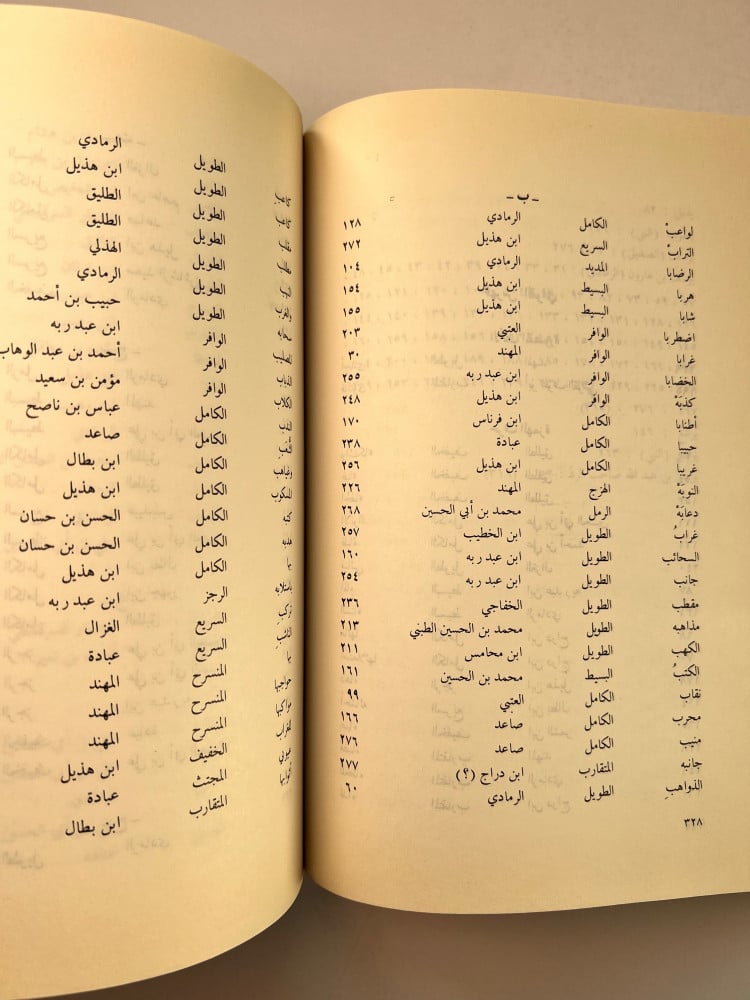 - ب -
لواعبْ الكامل الرمادي ١٢٨
الترابْ السريع ابن هذيل ٢٧٢
الرضابا المديد الرمادي ١٠٤
هربا البسيط ابن هذيل ١٥٤
شابا البسيط ابن هذيل ١٥٥
اضطربا الوافر العتبي ٢٠٣
غرابا الوافر المهند ٣٠
الخضابا الوافر ابن عبد ربه ٢٥٥
كذبَهْ الوافر ابن هذيل ٢٤٨
أطنابا الكامل ابن فرناس ١٧٠
حبيبا الكامل عبادة ٢٣٨
غريبا الكامل ابن هذيل ٢٥٦
النوبَهْ الهزج المهند ٢٢٦
دعابَهْ الرمل محمد بن أبي الحسين ٢٦٨
غرابُ الطويل ابن الخطيب ٢٥٧
السحائب الطويل ابن عبد ربه ١٦٠
جانب الطويل ابن عبد ربه ٢٥٤
مقطب الطويل الخفاجي ٢٣٦
مذاهبه الطويل محمد بن الحسين الطبني ٢١٣
الكهب الطويل ابن محامس ٢١١
الكتبُ البسيط محمد بن الحسين ١٦١
نقاب الكامل العتبي ٩٩
محرب الكامل صاعد ١٦٦
منيب الكامل صاعد ٢٧٦
جانبه المتقارب ابن دراج (؟) ٢٧٧
الذواهبِ الطويل الرمادي ٦٠
٣٢٨
كاعب الطويل الرمادي
كاعب الطويل ابن هذيل
مطلب الطويل الطليق
مطلب الطويل الطليق
الطويل الهذلي
والغرب الطويل الرمادي
سحابه الطويل حبيب بن أحمد
الصليب الوافر ابن عبد ربه
الذباب الوافر أحمد بن عبد الوهاب
الكلاب الوافر مؤمن بن سعيد
الكامل عباس بن ناصح
الكامل صاعد
وغياهب الكامل ابن بطال
المنكوب الكامل ابن هذيل
كتبه الكامل الحسن بن حسان
هدبه الكامل الحسن بن حسان
بها الكامل ابن هذيل
الرجز ابن عبد ربه
تركب السريع الغزال
السريع عبادة
بها المنسرح المهند
حواجبها المنسرح المهند
مواكبها المنسرح المهند
للغراب الخفيف ابن هذيل
عيوبي المجتث عبادة
المتقارب ابن بطال